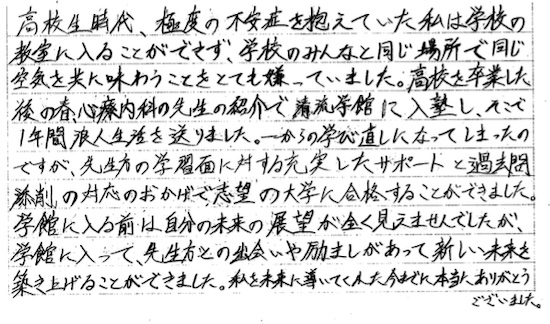 高校生時代、極度の不安症を抱えていた私は学校の
教室に入ることができず、学校のみんなと同じ場所で同じ
空気を共に味わうことをとても嫌っていました。高校を卒業した
後の春、心療内科の先生の紹介で清流学館に入塾し、そこで
1年間浪人生活を送りました。一からの学び直しになってしまったの
ですが、先生方の学習面に対する充実したサポートと過去問
添削の対応のおかげで志望の大学に合格することができました。
学館に入る前は自分の未来の展望が全く見えませんでしたが、
学館に入って、先生方との出会いや励ましがあって新しい未来を
築き上げることができました。私を未来に導いてくれた今までに本当にありがとう
ございました。